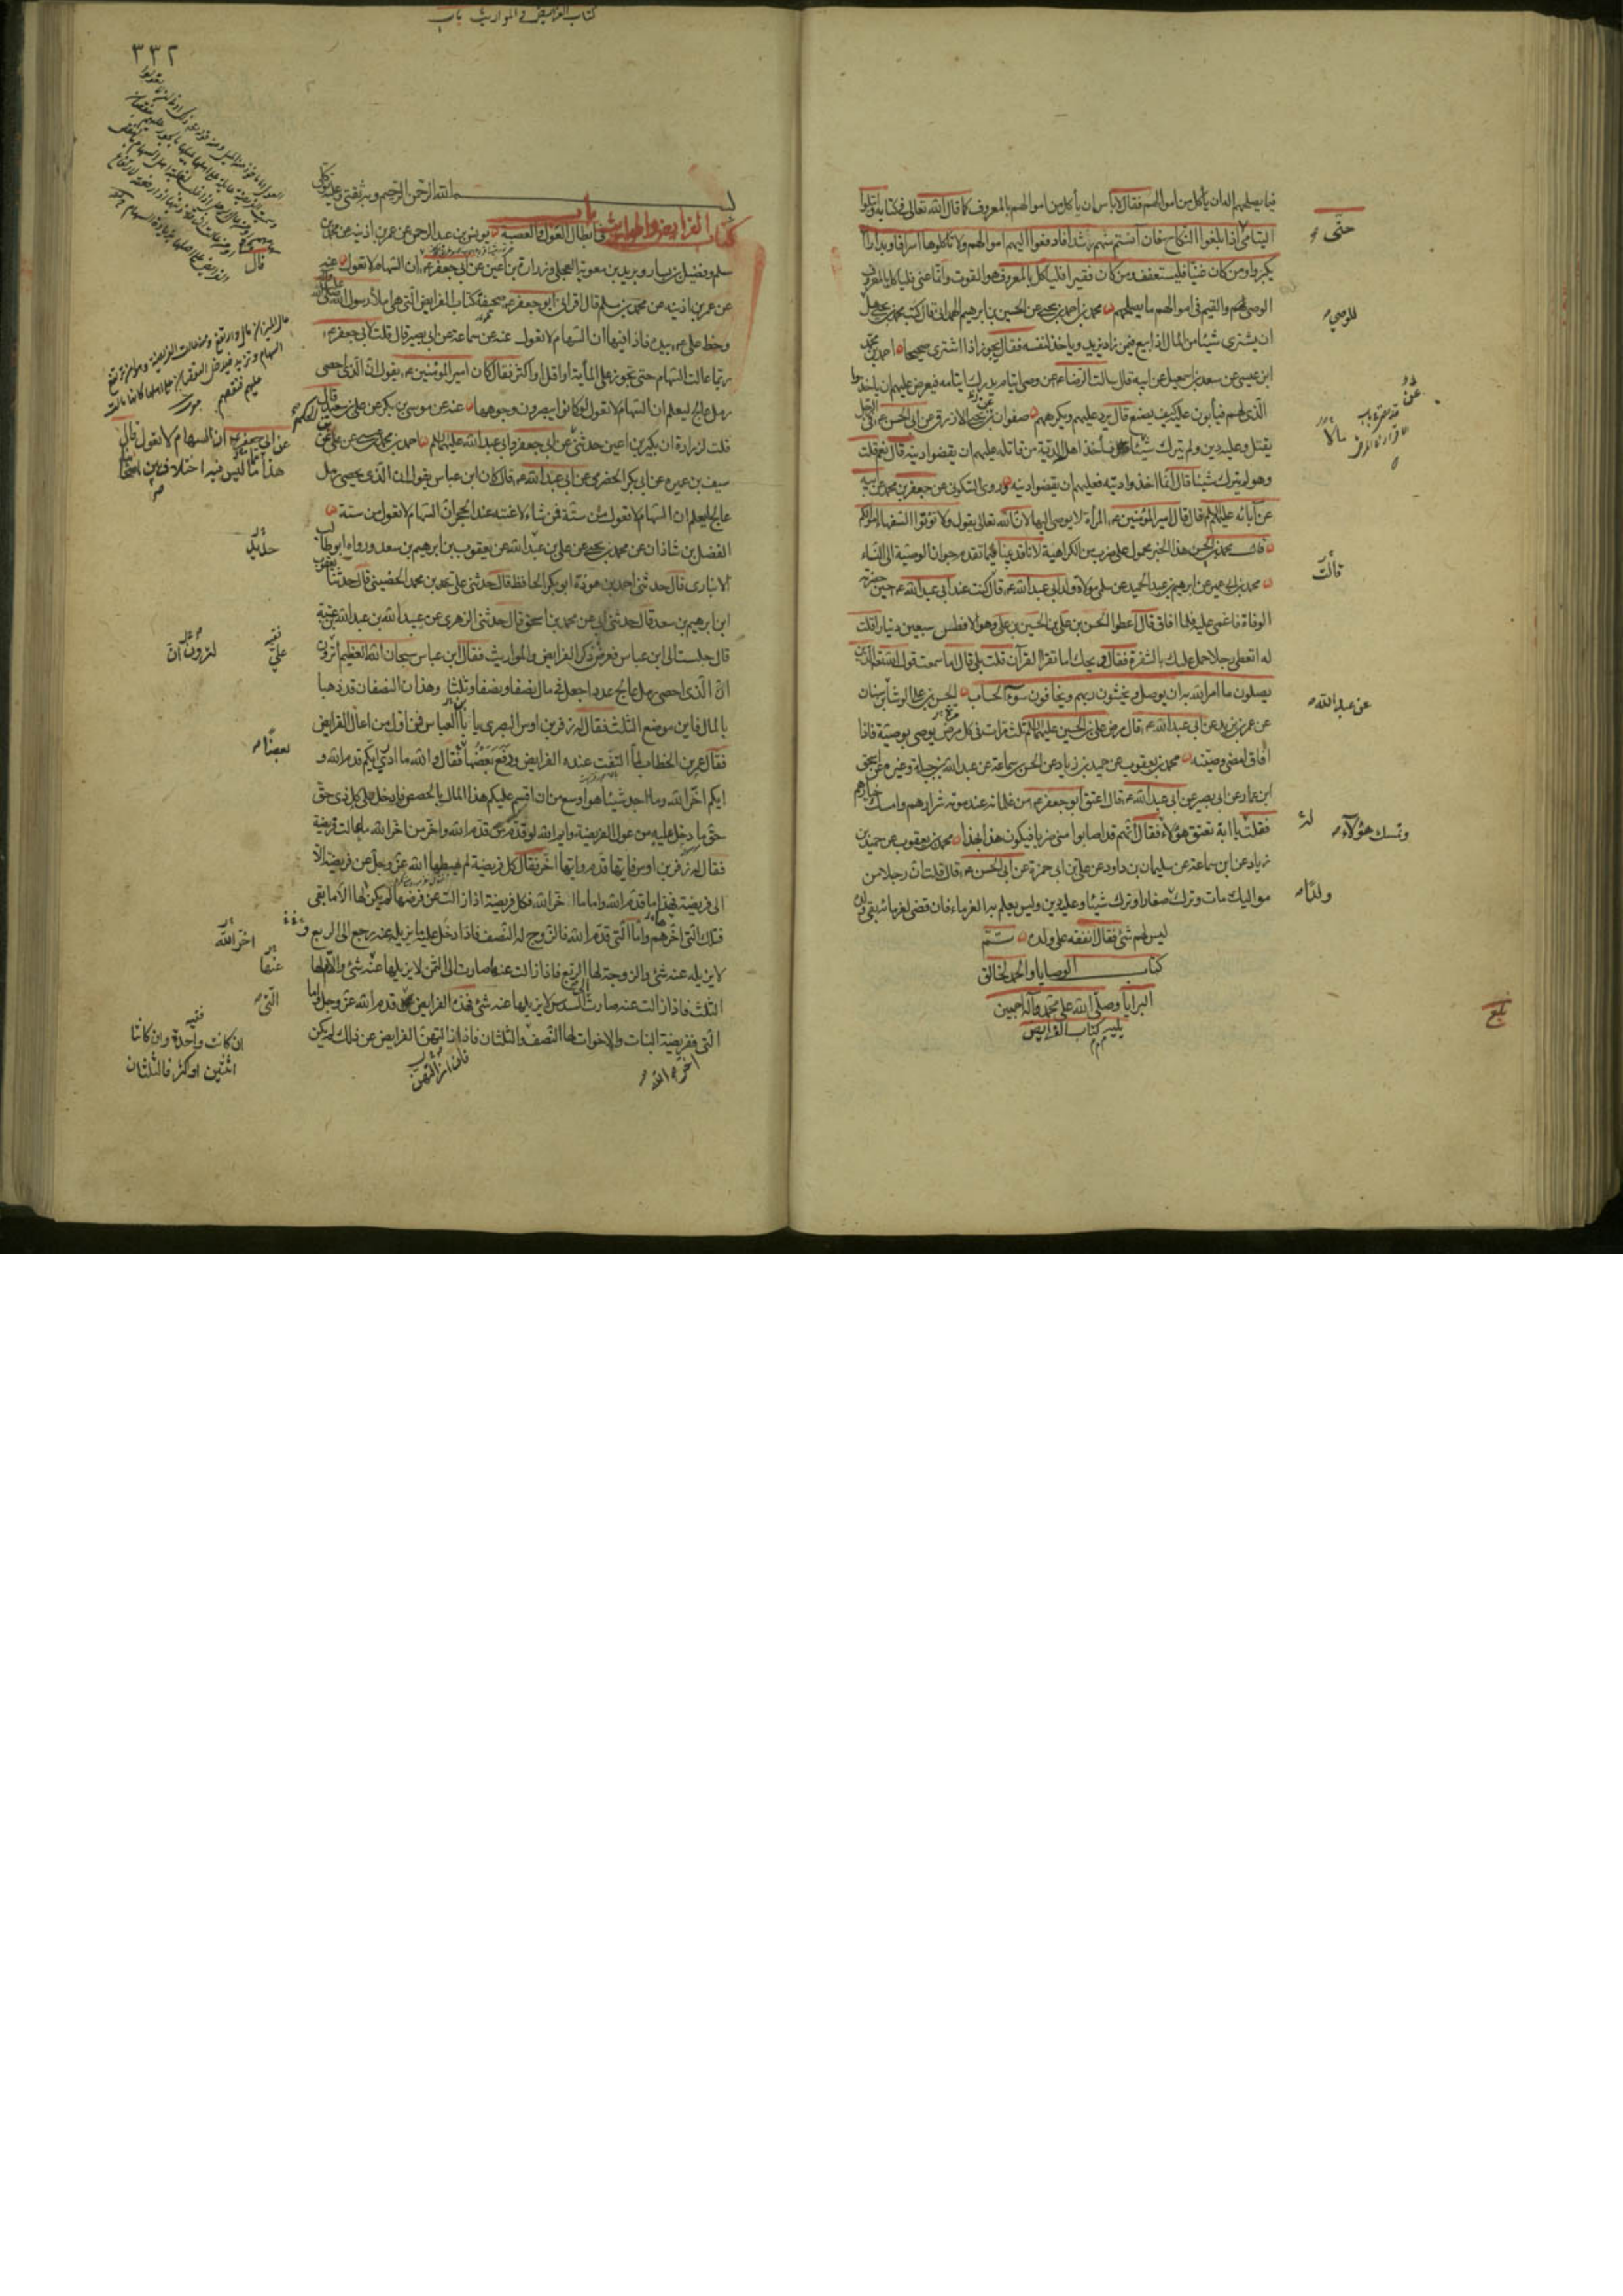 فيما يصلحهم الدان يأكل من اموالهم فقال لا بأس ان يأكل من اموالهم بالمعروف كما قال الله تعالى في كتابه وابتلوا
اليتامى حتى اذا بلغوا النكاح فان آنستم منهم رشدا فادفعوا اليهم اموالهم ولا تأكلوها اسرافا وبدارا ان
يكبروا ومن كان غنيا فليستعفف ومن كان فقيرا فليأكل بالمعروف هو القوت وانما عنى فليأكل بالمعروف
الوصي لهم والقيم في اموالهم ما يصلحهم محمد بن احمد بن يحيى عن الحسين بن ابراهيم الهمداني قال كتب محمد بن يحيى هل
ان يشتري شيئا من المال اذا بيع فيمن زاد يزيد وياخذ لنفسه فقال يجوز اذا اشترى صحيحا احمد بن محمد
ابن عيسى عن سعد بن اسمعيل عن ابيه قال سالت الرضا ع عن وصي ايتام يدرك ايتامه فيعرض عليهم ان ياخذوا
الذي لهم فيأبون عليه كيف يصنع قال يرد عليهم ويكرههم صفوان بن يحيى الازرق عن ابي الحسن ع في الرجل
يقتل وعليه دين ولم يترك شيئا فأخذ اهله الدية من قاتله عليهم ان يقضوا دينه قال نعم قلت
وهو لم يترك شيئا قال انما اخذوا ديته فعليهم ان يقضوا دينه وروى السكوني عن جعفر بن محمد عن ابيه
عن آبائه عليهم السلام قال قال امير المؤمنين ع المرأة لا يوصى اليها لان الله تعالى يقول ولا تؤتوا السفهاء اموالكم
قال محمد بن الحسن هذا الخبر محمول على ضرب من الكراهية لانا قد بينا فيما تقدم جواز الوصية الى النساء
محمد بن ابي عمير عن ابراهيم بن عبد الحميد عن سلمى مولاة ولد ابي عبد الله ع قال كنت عند ابي عبد الله ع حين حضرته
الوفاة فاغمي عليه فلما افاق قال اعطوا الحسن بن علي بن الحسين بن علي وهو الافطس سبعين دينارا قلت
له اتعطي رجلا حمل عليك بالشفرة فقال ويحك اما تقرأ القرآن قلت بلى قال اما سمعت قول الله تعالى الذين
يصلون ما امر الله به ان يوصل ويخشون ربهم ويخافون سوء الحساب الحسن بن علي الوشا عن
عن عمر بن يزيد عن ابي عبد الله ع قال مرض علي بن الحسين عليهما السلام ثلث مرات في كل مرض يوصي بوصية فاذا
افاق امضى وصيته محمد بن يعقوب عن حميد بن زياد عن الحسن بن سماعة عن عبد الله بن جبلة وغيره عن اسحق
ابن عمار عن ابي بصير عن ابي عبد الله ع قال اعتق ابو جعفر ع من غلمانه عند موته شرارهم وامسك خيارهم
فقلت يا ابة تعتق هؤلاء فقال انهم قد اصابوا مني ضربا فيكون هذا بهذا محمد بن يعقوب عن حميد بن
زياد عن ابن سماعة عن سليمان بن داود عن علي بن ابي حمزة عن ابي الحسن ع قال قلت ان رجلا من
مواليك مات وترك صغارا وترك شيئا وعليه دين وليس يعلم به الغرماء فان قضى لغرمائه بقي ولده
ليس لهم شئ فقال انفقه على ولده تم
كتاب الوصايا والحمد لخالق
البرايا وصلى الله على محمد وآله اجمعين
يليه كتاب الفرايض
حتى
للوصي
قالت
عن عبد الله
وتمسك هؤلآء
ولدًا
بلغ
كتاب الفرايض في المواريث باب
٣٣٢
بسم الله الرحمن الرحيم وبه ثقتي
كتاب الفرايض والمواريث باب في ابطال العول والعصبة يونس بن عبد الرحمن عن عمر بن اذينه عن محمد بن
سلم وفضيل بن يسار وبريد بن معوية العجلي وزرارة بن اعين عن ابي جعفر ع ان السهام لا تعول عنه
عن عمر بن اذينه عن محمد بن سلم قال اقرأني ابو جعفر ع صحيفة كتاب الفرايض التي هي املاء رسول الله
وخط علي ع بيده فاذا فيها ان السهام لا تعول عنه عن سماعة عن ابي بصير قال قلت لابي جعفر ع
ربما عالت السهام حتى يجوز على المأية او اقل او اكثر فقال كان امير المؤمنين ع يقول ان الذي احصى
رمل عالج ليعلم ان السهام لا تعول لو كانوا يبصرون وجوهها عنه عن موسى بن بكر عن علي بن سعيد قال
قلت لزرارة ان بكير بن اعين حدثني عن ابي جعفر وابي عبد الله عليهما السلام احمد بن محمد بن عيسى عن علي بن
سيف بن عميره عن ابي بكر الحضرمي عن ابي عبد الله ع قال كان ابن عباس يقول ان الذي يحصي رمل
عالج ليعلم ان السهام لا تعول من ستة فمن شاء لاعنته عند الحجر ان السهام لا تعول من ستة
الفضل بن شاذان عن محمد بن يحيى عن علي بن عبد الله عن يعقوب بن ابرهيم بن سعد ورواه ابو طالب
الانباري قال حدثني احمد بن هوذة ابو بكر الحافظ قال حدثني علي بن محمد الحضيني قال حدثنا يعقوب
ابن ابرهيم بن سعد قال حدثني ابي عن محمد بن اسحق قال حدثني الزهري عن عبيد الله بن عبد الله بن عتبة
قال جلست الى ابن عباس فعرض ذكر الفرايض والمواريث فقال ابن عباس سبحان الله العظيم اترون
ان الذي احصى رمل عالج عددا جعل في مال نصفا ونصفا وثلثا وهذان النصفان قد ذهبا
بالمال فاين موضع الثلث فقال له زفر بن اوس البصري يا ابا العباس فمن اول من اعال الفرايض
فقال عمر بن الخطاب لما التفت عنده الفرايض ودفع بعضها فقال والله ما ادري ايكم قدم الله و
ايكم اخر الله وما اجد شيئا هو اوسع من ان اقسم عليكم هذا المال بالحصص فادخل على كل ذي حق
حق ما دخل عليه من عول الفريضة وايم الله لو قدم من قدم الله واخر من اخر الله ما عالت فريضة
فقال له زفر بن اوس فايها قدم وايها اخر فقال كل فريضة لم يهبطها الله عز وجل عن فريضة الا
الى فريضة فهذا ما قدم الله واما ما اخر الله فكل فريضة اذا زالت عن فرضها لم يكن لها الا ما بقي
فتلك التي اخرهم واما التي قدم الله فالزوج له النصف فاذا دخل عليه ما يزيله عنه رجع الى الربع و
لا يزيله عنه شئ والزوجة لها الربع فاذا زالت عنه صارت الى الثمن لا يزيلها عنه شئ والام لها
الثلث فاذا زالت عنه صارت الى السدس لا يزيلها عنه شئ فهذه الفرايض قدم الله عز وجل واما
التي ففريضة البنات والاخوات لها النصف والثلثان فاذا ازالتهن الفرايض عن ذلك لم يكن
اخره الله
فان ازالتهن
قال
عن ابي جعفر ان السهام لا تعول قال
هذا مما ليس فيه اختلاف بين اصحابنا
علي
بعضًا
اخر الله
عنها
التي
ان كانت واحدة وان كانتا
اثنتين او اكثر فالثلثان